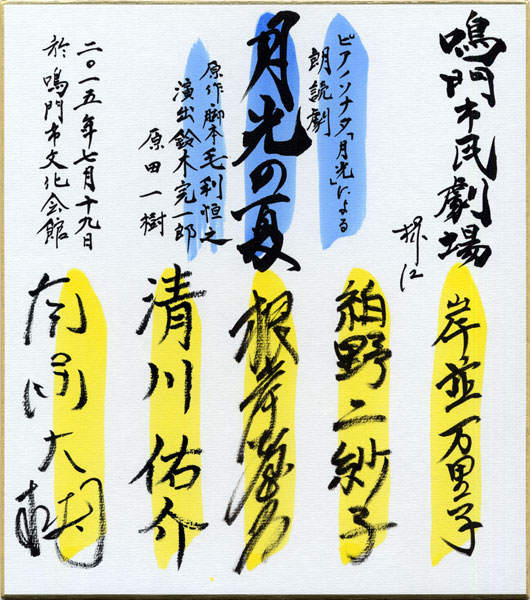 鳴門市民劇場
様江
ピアノソナタ「月光」による
朗読劇
月光の夏
原作・脚本 毛利恒之
演出 鈴木完一郎
原田一樹
二〇一五年七月十九日
於 鳴門市文化会館
岸並万里子
柏野二紗子
根岸
清川佑介
大輔